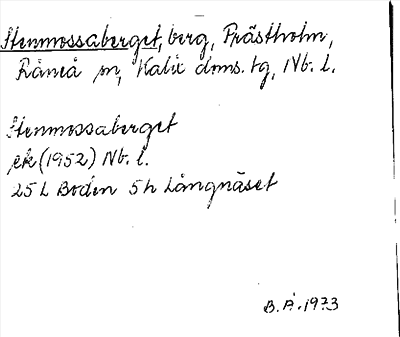 Stenmossaberget, berg, Prästholm,
Råneå sn, Kalix doms. tg, Nb. l.
Stenmossaberget
ek (1952) Nb. l.
25 L Boden 5h Långnäset
B. Å. 1973